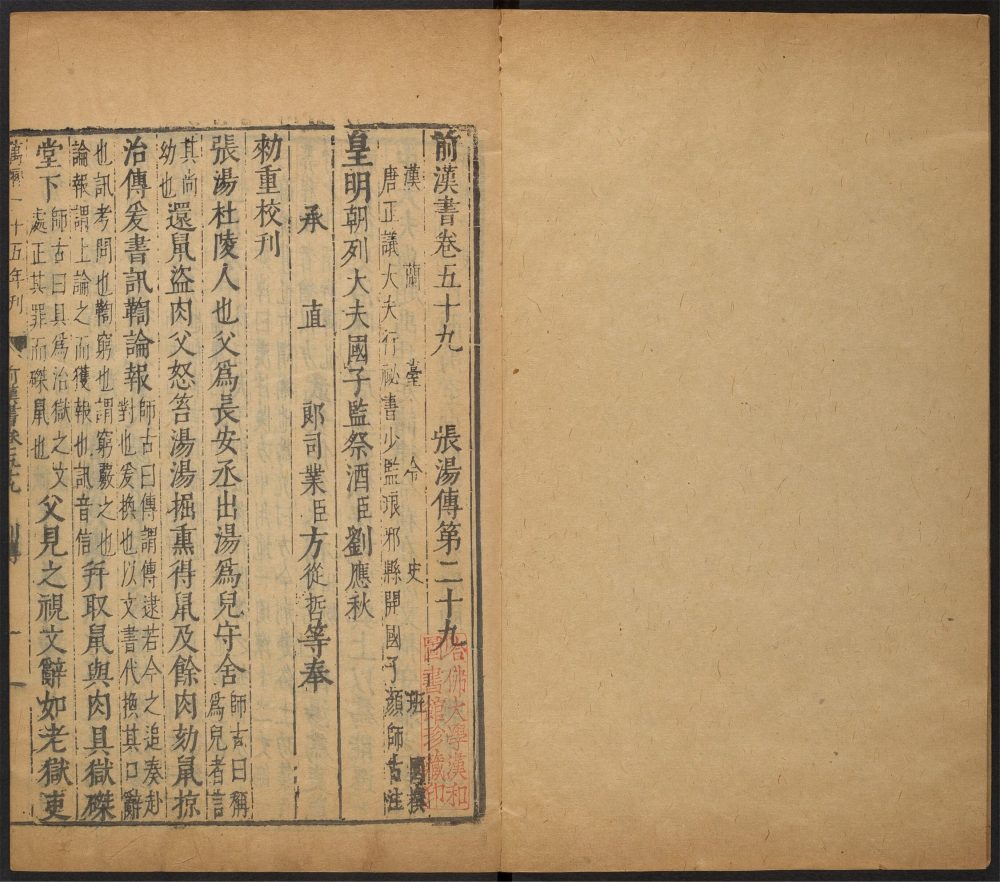 前漢書卷五十九 張湯傳第二十九
漢蘭臺令史班固撰
唐正議大夫行祕書少監琅邪縣開國子顏師古注
皇明朝列大夫國子監祭酒臣劉應秋
承直郎司業臣方從哲等奉
勑重校刊
張湯杜陵人也父爲長安丞出湯爲兒守舍師古曰稱爲兒者言
其尚幼也還鼠盜肉父怒笞湯湯掘熏得鼠及餘肉劾鼠掠
治傳爰書訊鞫論報師古曰傳謂傳逮若今之追奏赴對也爰換也以文書代換其口辭
也訊考問也鞫窮也謂窮覈之也論報謂上論之而獲報也訊音信幷取鼠與肉具獄磔
堂下師古曰具爲治獄之文處正其罪而磔鼠也父見之視文辭如老獄吏
萬曆二十五年刊 前漢書卷五十九 列傳 一
哈佛大學漢和圖書館珍藏印